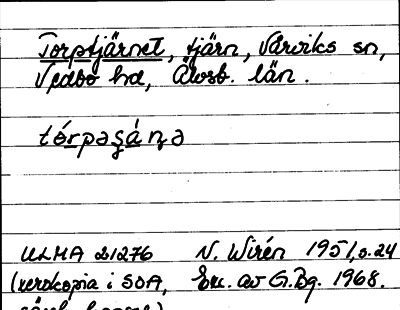 Torptjärnet, tjärn, Vårviks sn,
Vedbo hd, Älvsb. län.
tórpaşáṇa
ULMA 21276 N. Wirén 1951, s. 24
(xerokopia i SOA, Exc. av G.Bg. 1968.